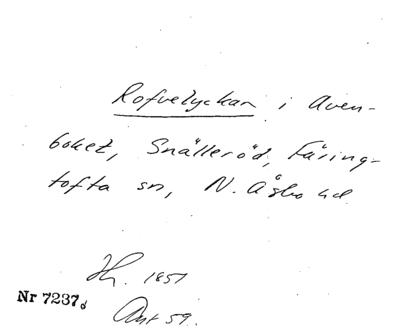 Rofvelyckan i Aven-
boket, Snälleröd, Färing-
tofta sn, N. Åsbo hd
Hr. 1851
Nr 7237d
Ant 59.